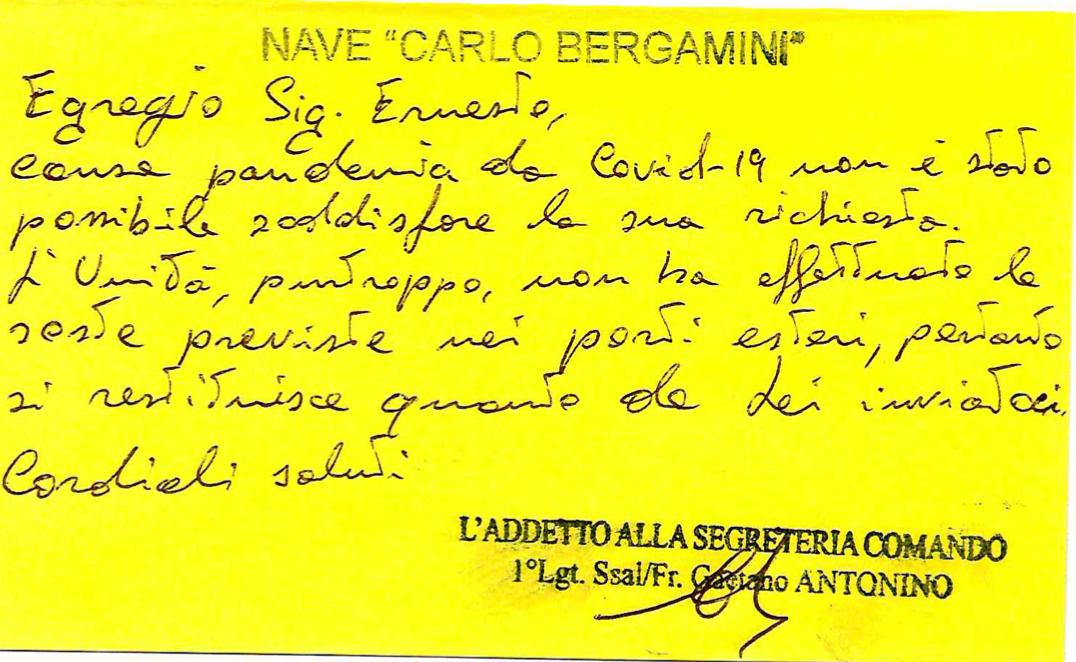 NAVE "CARLO BERGAMINI"
Egregio Sig. Ernesto,
causa pandemia da Covid-19 non è stato
possibile soddisfare la sua richiesta.
L'Unità, purtroppo, non ha effettuato le
soste previste nei porti esteri, pertanto
si restituisce quanto da Lei inviatoci.
Cordiali saluti
L'ADDETTO ALLA SEGRETERIA COMANDO
1°Lgt. Ssal/Fr. Gaetano ANTONINO